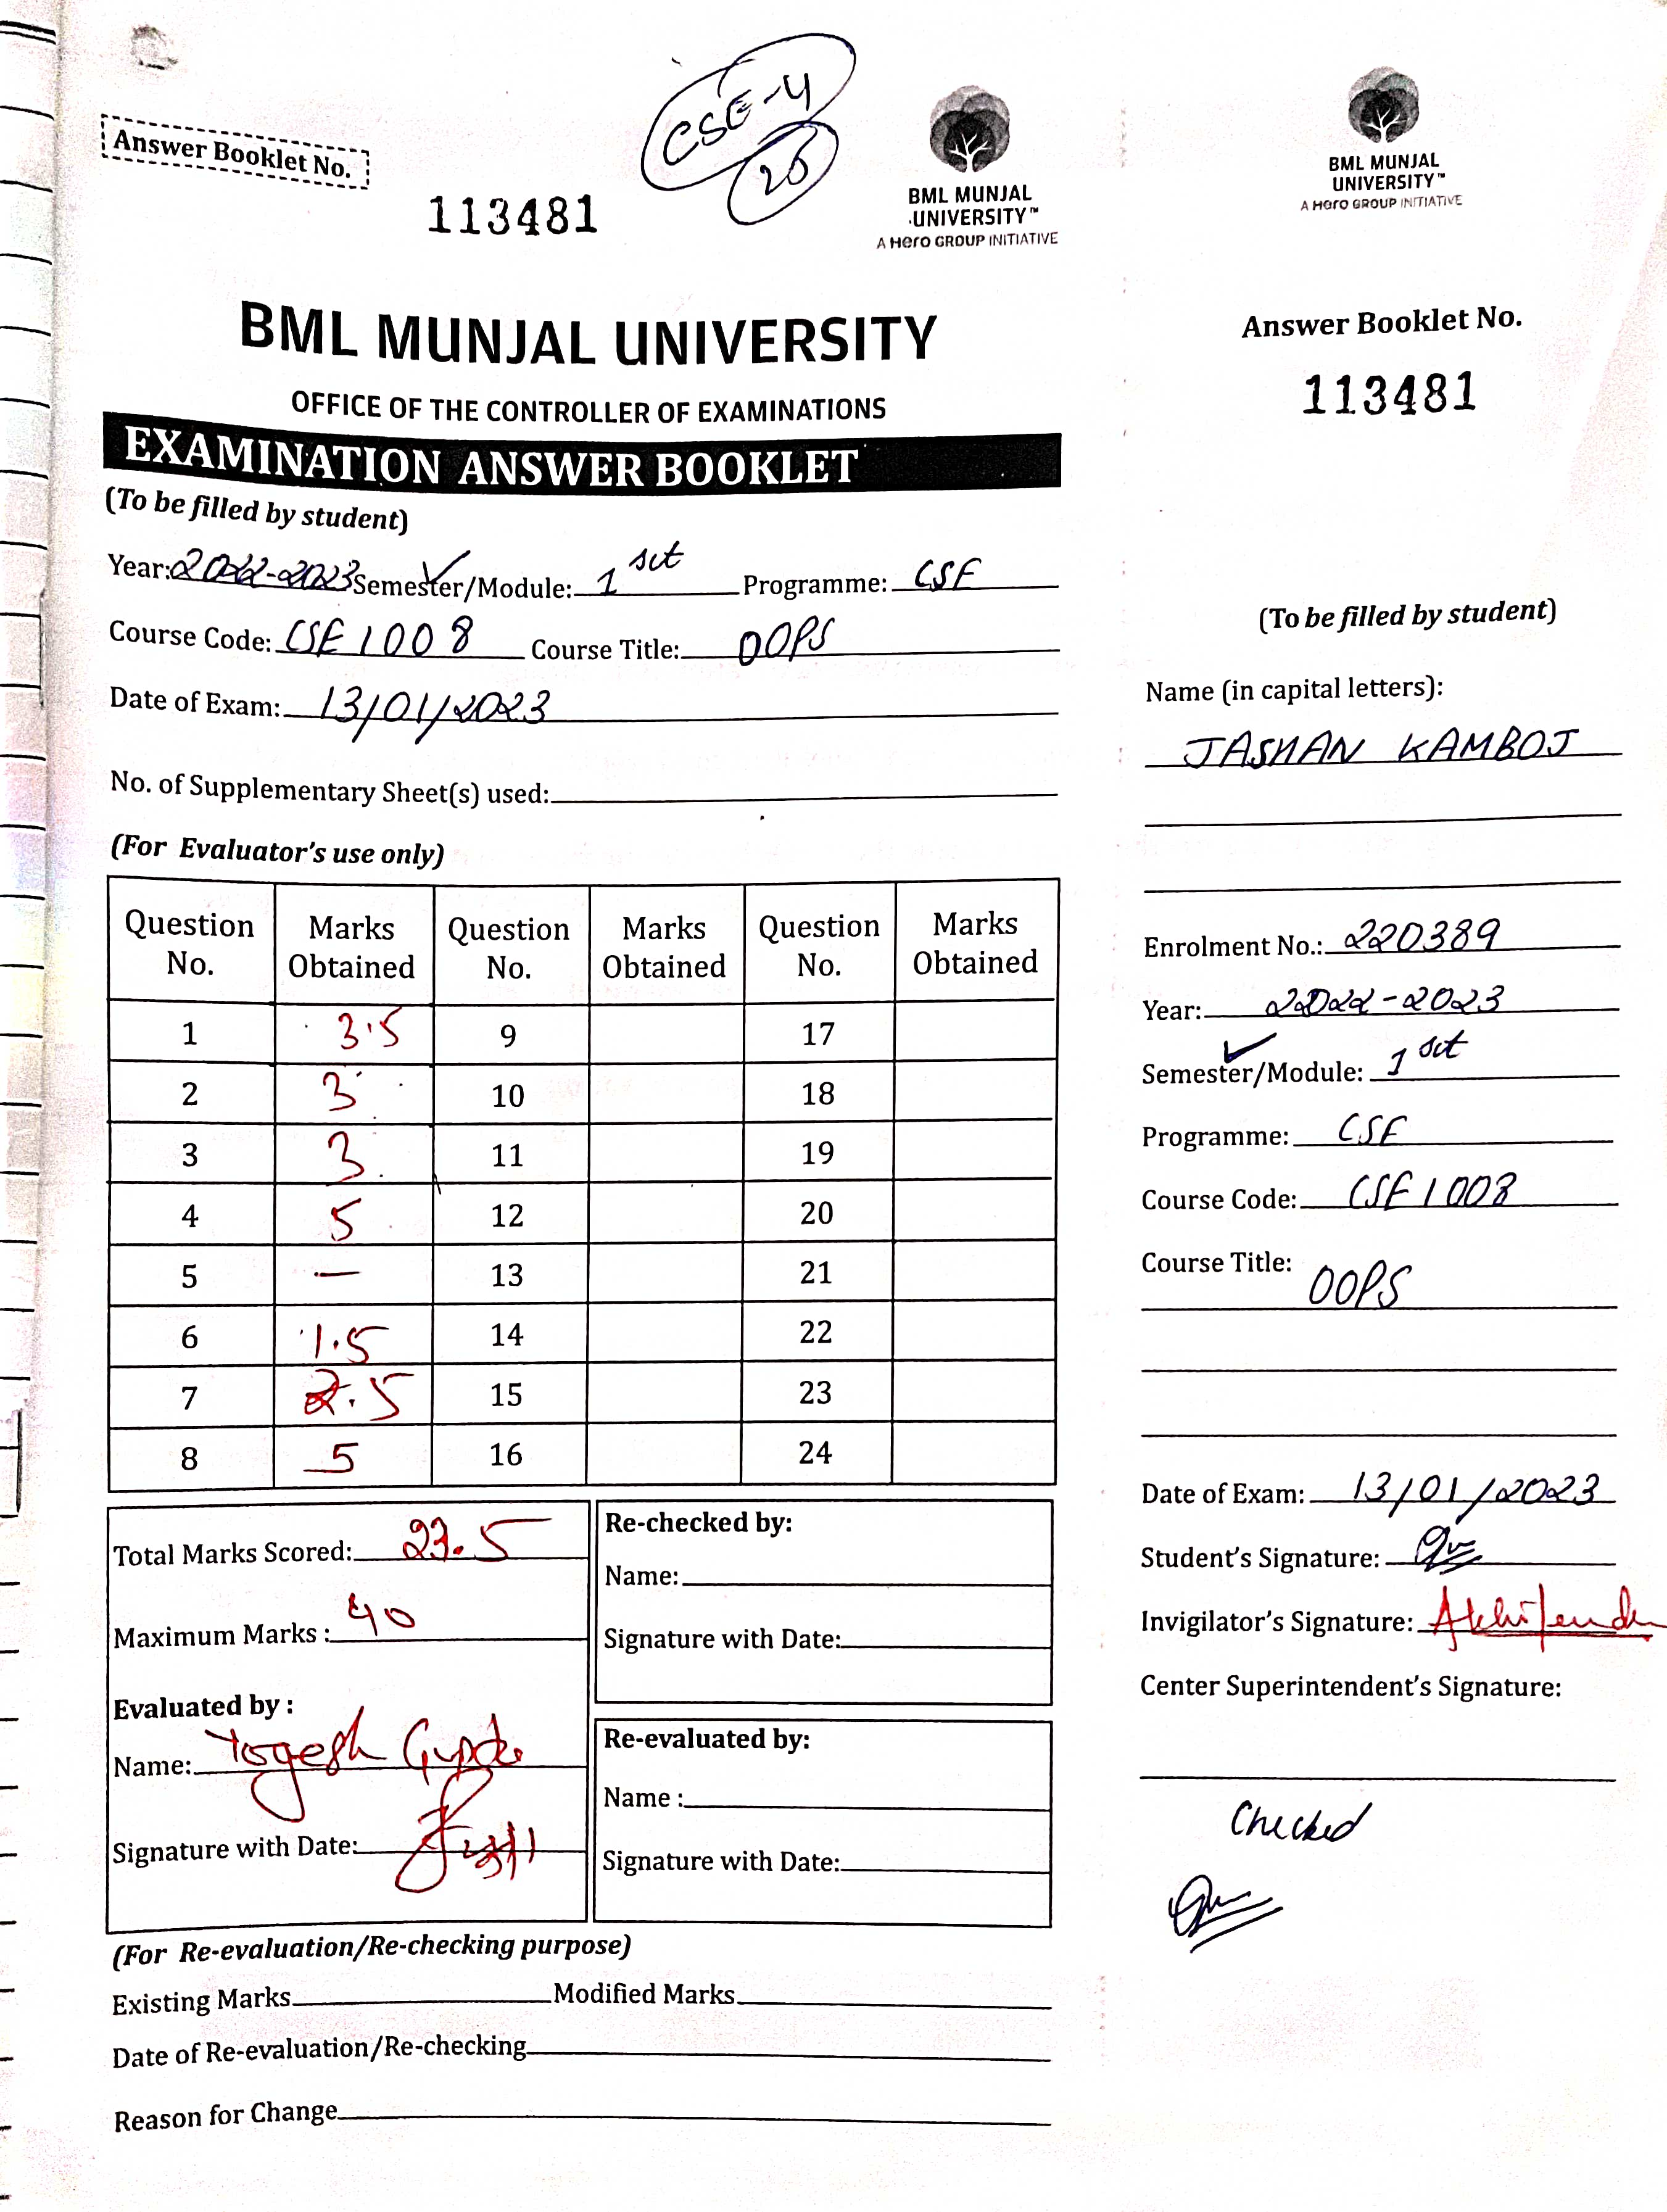 CSE-4
25
Answer Booklet No.
113481
BML MUNJAL
UNIVERSITY™
A Hero GROUP INITIATIVE
BML MUNJAL UNIVERSITY
OFFICE OF THE CONTROLLER OF EXAMINATIONS
EXAMINATION ANSWER BOOKLET
(To be filled by student)
Year: 2022-2023 Semester/Module: 1 Programme: CSE
Course Code: CSE 1008 Course Title: OOPS
Date of Exam: 13/01/2023
No. of Supplementary Sheet(s) used:
(For Evaluator's use only)
Question No. Marks Obtained Question No. Marks Obtained Question No. Marks Obtained
1 3.5 9 17
2 3 10 18
3 3 11 19
4 5 12 20
5 — 13 21
6 1.5 14 22
7 2.5 15 23
8 5 16 24
Total Marks Scored: 23.5
Maximum Marks : 40
Evaluated by :
Name: Yogesh Gupta
Signature with Date:
Re-checked by:
Name:
Signature with Date:
Re-evaluated by:
Name :
Signature with Date:
(For Re-evaluation/Re-checking purpose)
Existing Marks Modified Marks
Date of Re-evaluation/Re-checking
Reason for Change
BML MUNJAL
UNIVERSITY™
A Hero GROUP INITIATIVE
Answer Booklet No.
113481
(To be filled by student)
Name (in capital letters):
JASHAN KAMBOJ
Enrolment No.: 220389
Year: 2022-2023
Semester/Module: 1
Programme: CSE
Course Code: CSE 1008
Course Title: OOPS
Date of Exam: 13/01/2023
Student's Signature:
Invigilator's Signature:
Center Superintendent's Signature:
Checked